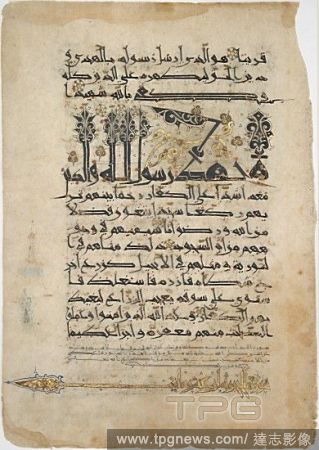 قريبا هو الذي ارسل رسوله بالهدى و
دين الحق ليظهره على الدين كله
وكفى بالله شهيدا
محمد رسول الله والذين
معه اشدا على الكفار رحما بينهم تر
يهم ركعا سجدا يبتغون فضلا
من الله ورضوانا سيماهم في وجو
ههم من اثر السجود ذلك مثلهم في ا
لتورية ومثلهم في الانجيل كزرع ا
خرج شطاه فازره فاستغلظ فا
ستوى على سوقه يعجب الزراع ليغيظ
بهم الكفار وعد الله الذين امنوا وعملوا
الصلحت منهم مغفرة واجرا عظيما
TPG
www.tpgnews.com / 達志影像